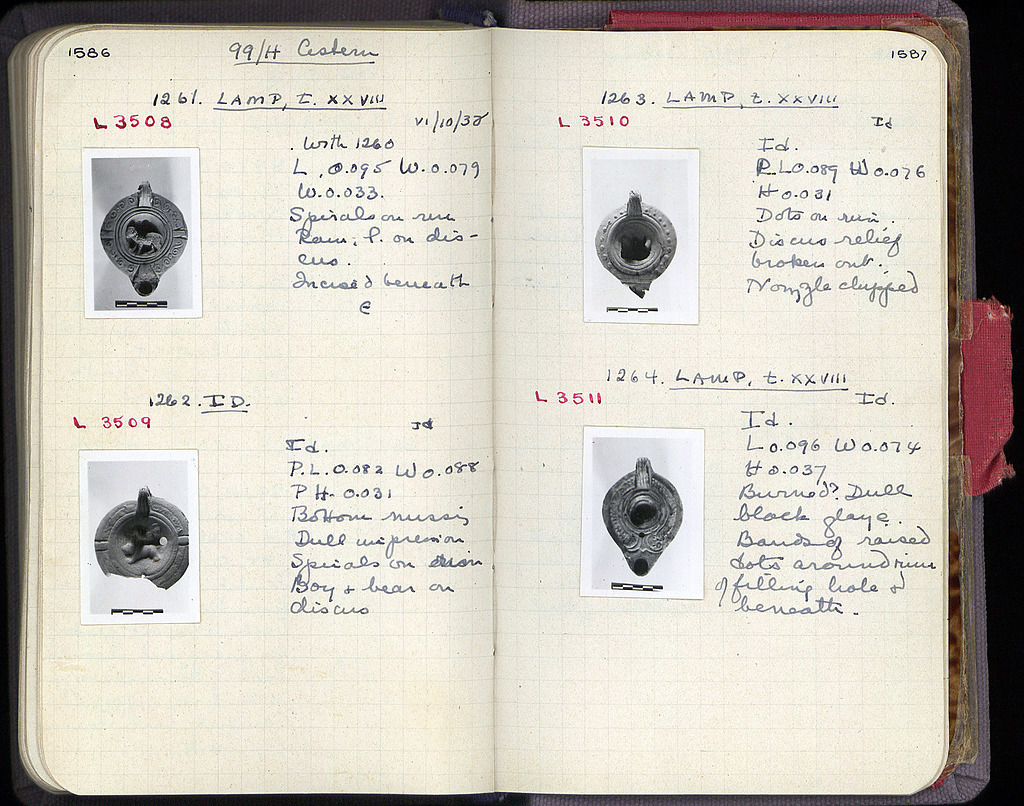 1586
99/H Cistern
1261. LAMP, T. XXVIII
L 3508
VI/10/38
. With 1260
L, 0.095 W. 0.079
W. 0.033.
Spirals on rim
Ram, l. on dis-
cus.
Incised beneath
e
1262. ID.
L 3509
Id
Id.
P.L. 0.082 W 0.088
P H. 0.031
Bottom missing
Dull impression
Spirals on rim
Boy & bear on
discus
1587
1263. LAMP, t. XXVIII
L 3510
Id
Id.
P.L 0.089 W 0.076
H 0.031
Dots on rim.
Discus relief
broken out.
Nozzle chipped
1264. LAMP, t. XXVIII
L 3511
Id.
Id.
L 0.096 W 0.074
H 0.037
Burned? Dull
black glaze.
Bands of raised
dots around rim
of filling hole &
beneath.